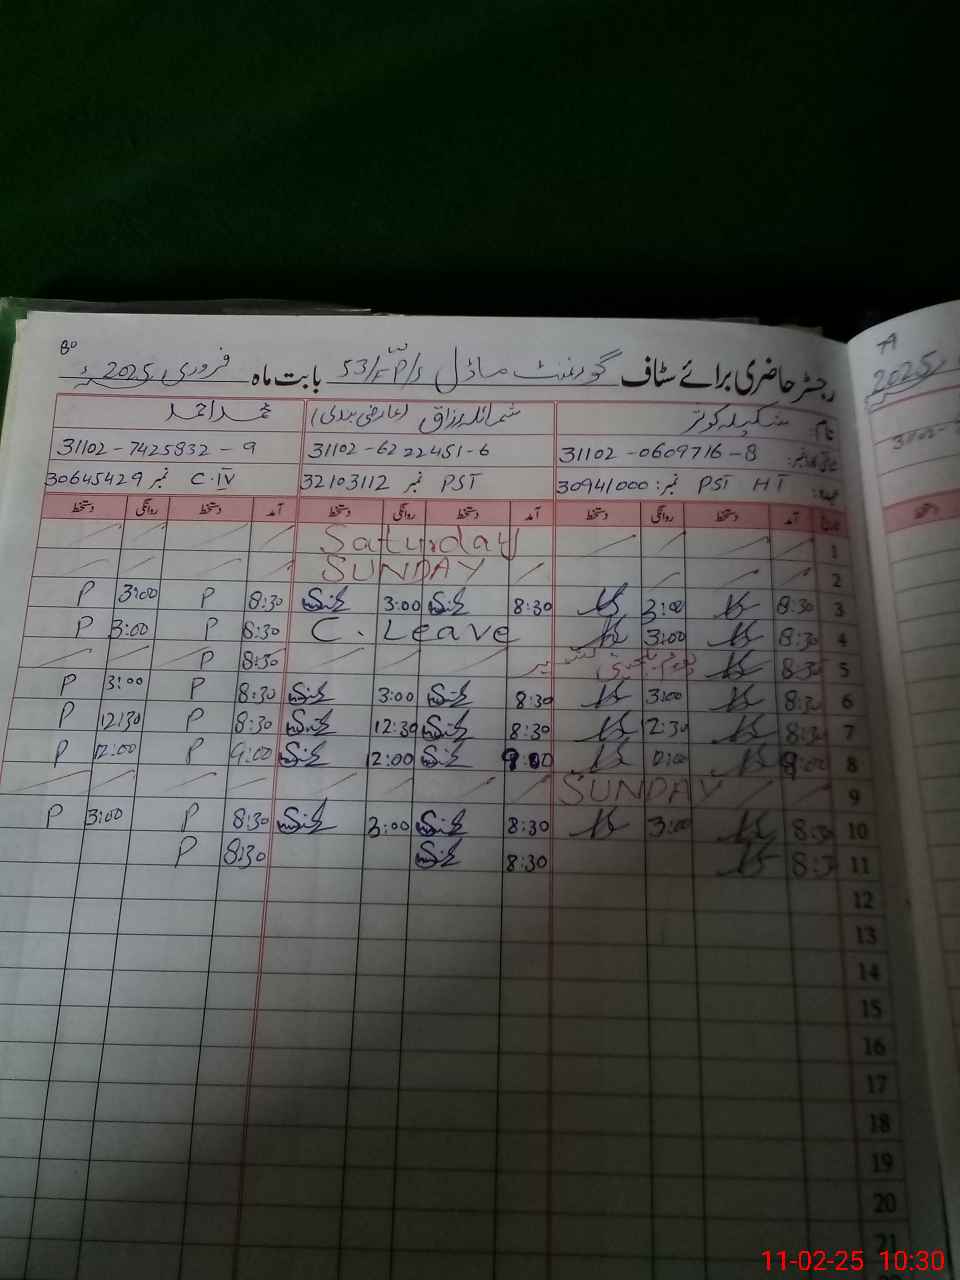 80
رجسٹر حاضری برائے سٹاف گورنمنٹ ماڈل 53/FP/s بابت ماہ فروری 2025ء
نام: شکیلہ کوثر شمائلہ رزاق (عارضی بندی) محمد احمد
31102-0609716-8 31102-6222451-6 31102-7425932-9
عہدہ: PST HT نمبر: 30941000 PST نمبر 32103112 C.IV نمبر 30645429
آمد دستخط روانگی دستخط آمد دستخط روانگی دستخط آمد دستخط روانگی دستخط
1 Saturday
2 SUNDAY
3 8:30 3:00 8:30 3:00 8:30 P 3:00 P
4 8:30 3:00 C. Leave 8:30 P 3:00 P
5 8:30 یوم یکجہتی کشمیر 8:30 P
6 8:30 3:00 8:30 3:00 8:30 P 3:00 P
7 8:30 12:30 8:30 12:30 8:30 P 12:30 P
8 9:00 12:00 9:00 12:00 9:00 P 12:00 P
9 SUNDAY
10 8:30 3:00 8:30 3:00 8:30 P 3:00 P
11 8:30 8:30 8:30 P
12
13
14
15
16
17
18
19
20
21
2025
دستخط
11-02-25 10:30